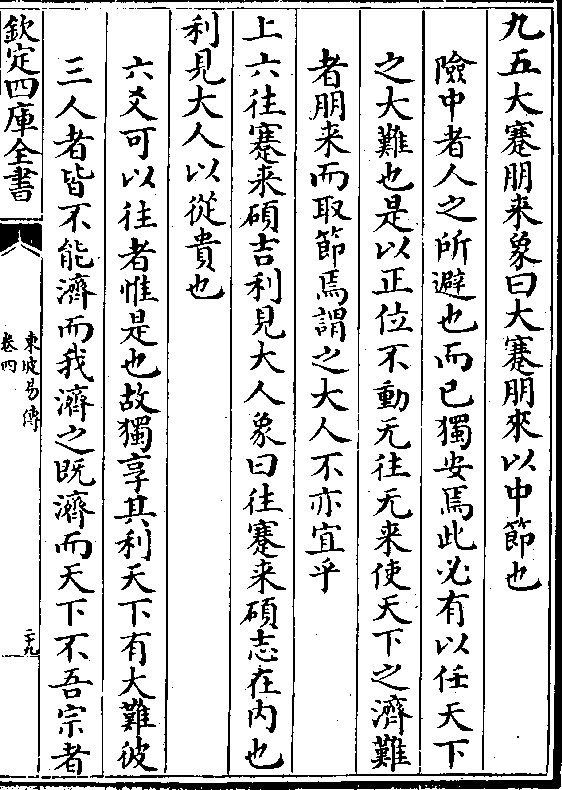 九五大蹇朋来象曰大蹇朋來以中節也
險中者人之所避也而已獨安焉此必有以任天下
之大難也是以正位不動无往无来使天下之濟難
者朋来而取節焉謂之大人不亦宜乎
上六往蹇来碩吉利見大人象曰往蹇来碩志在内也
利見大人以從貴也
六爻可以往者惟是也故獨享其利天下有大難彼
三人者皆不能濟而我濟之既濟而天下不吾宗者
欽定四庫全書
東坡易傳
卷四
二十九